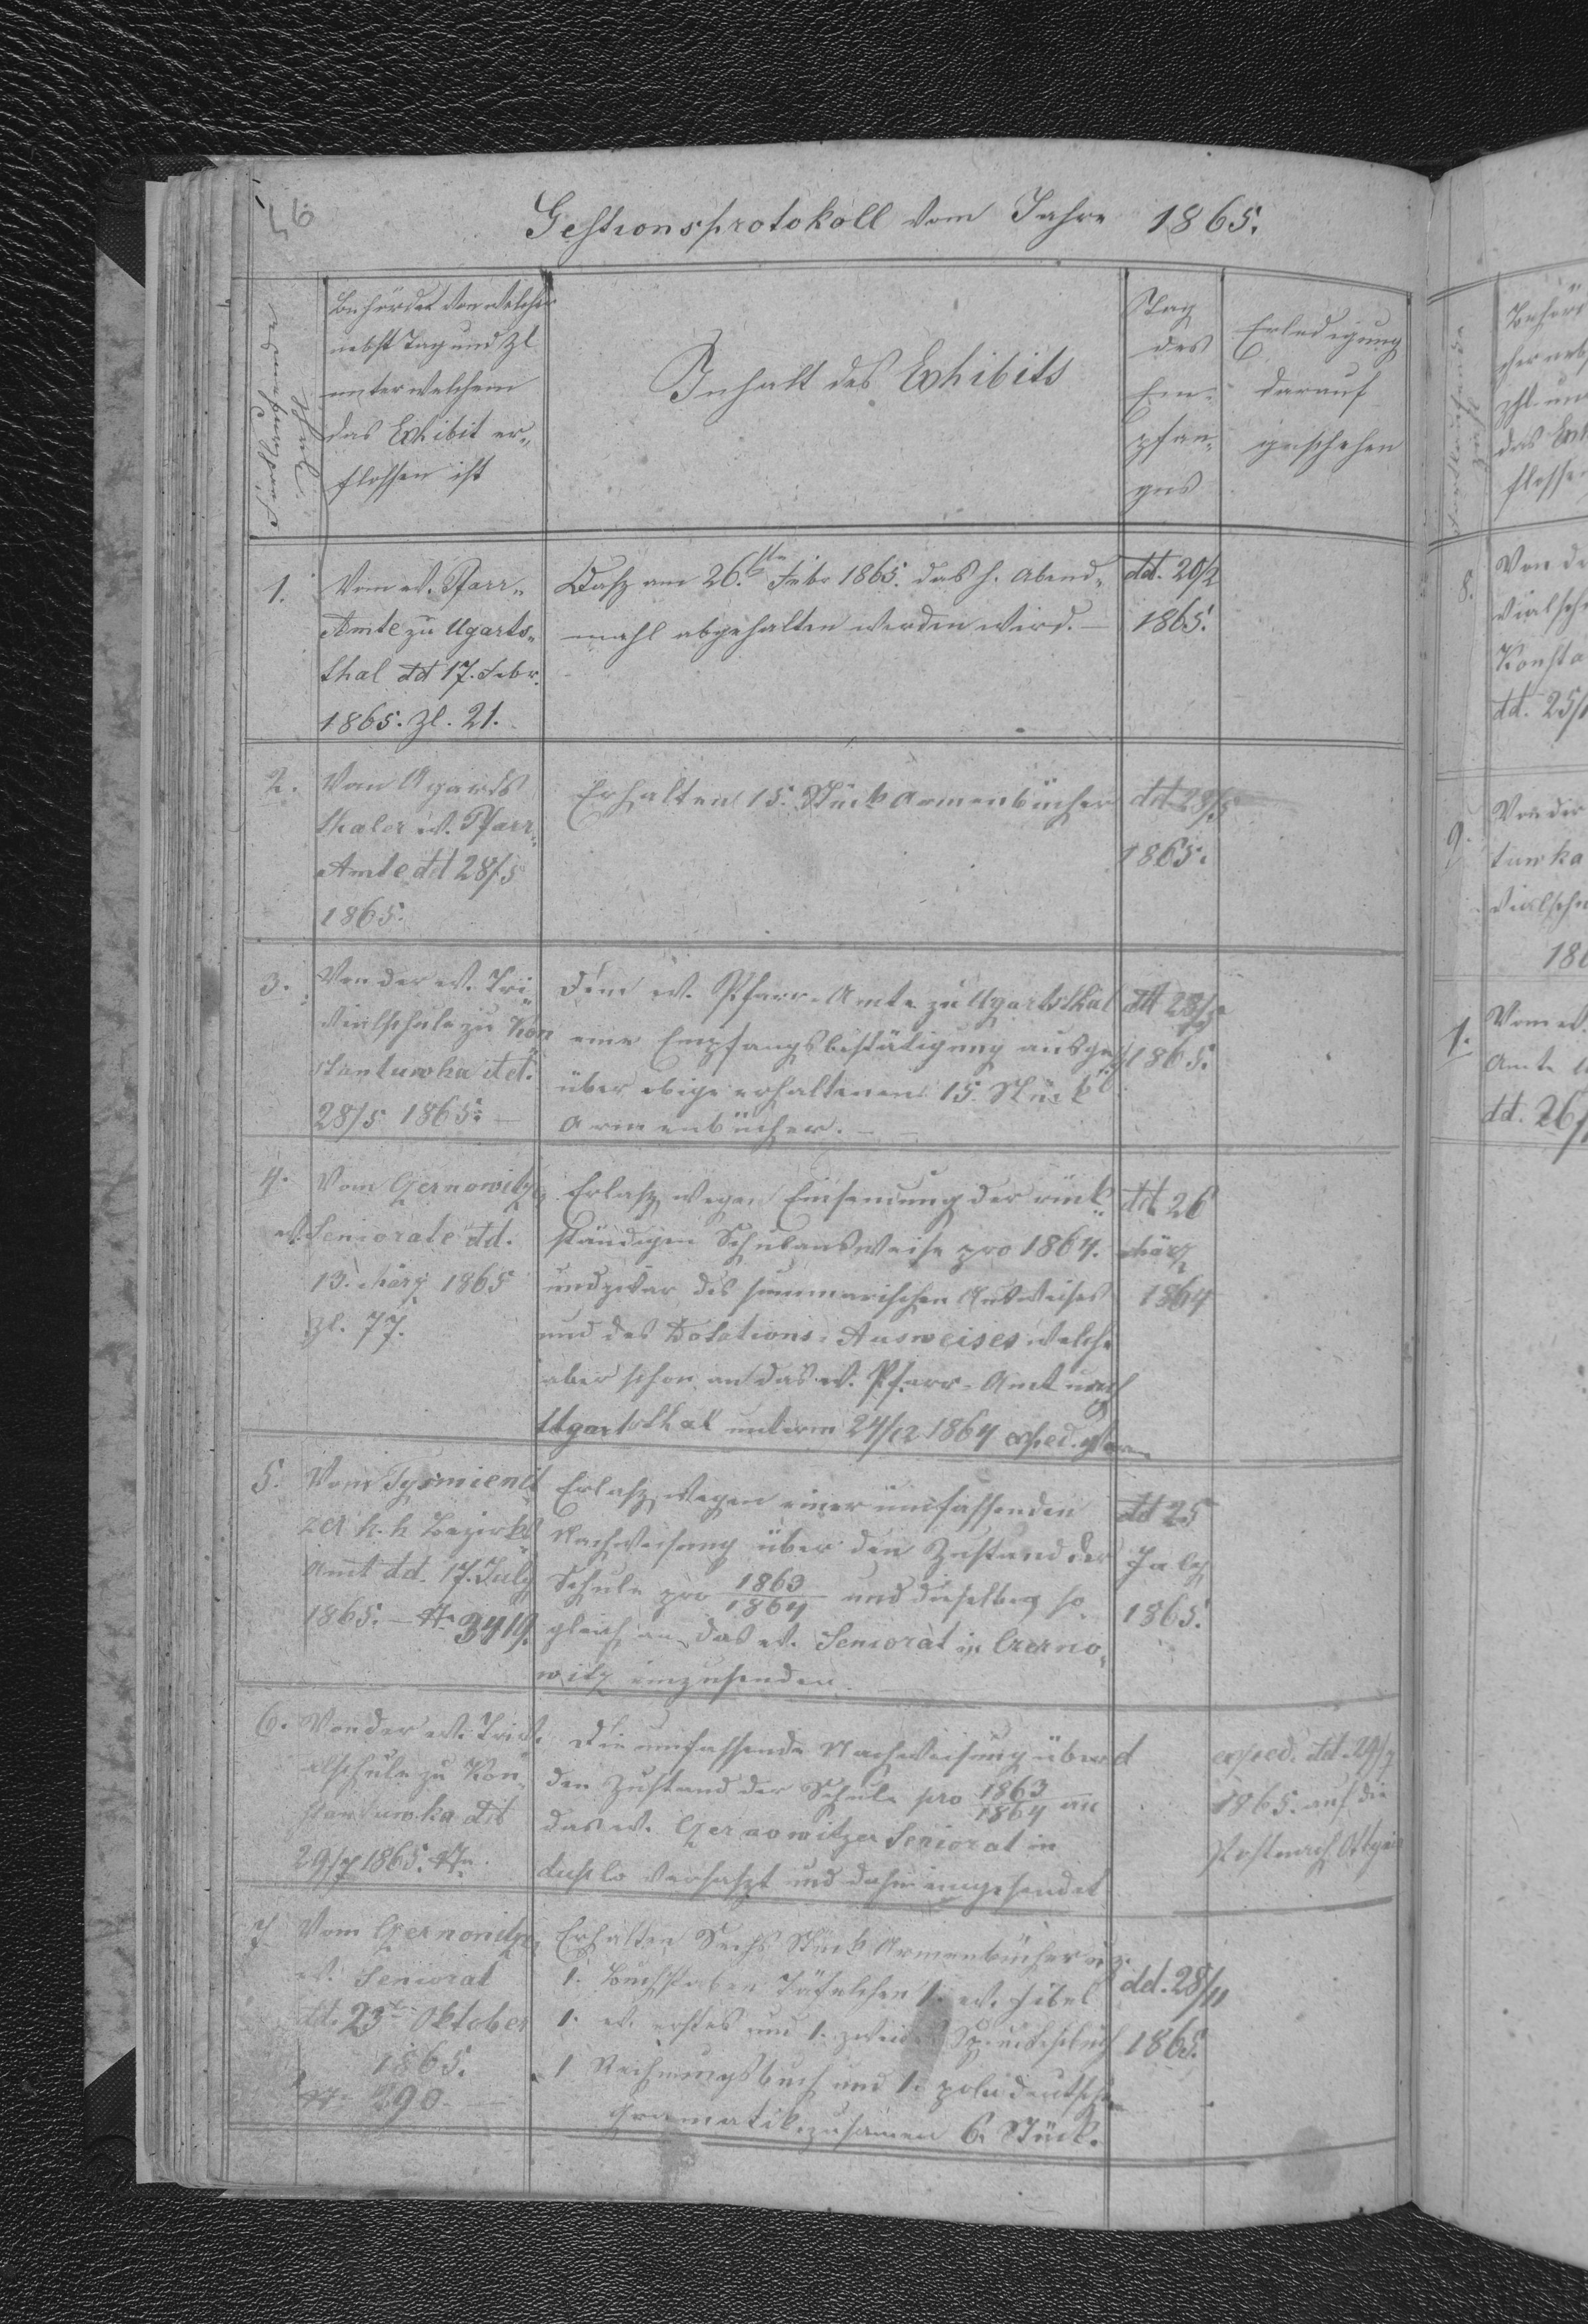 46
Gestionsprotokoll vom Jahre 1865.
Fortlaufende
Zahl
Behörde von welcher
nebst Tag und Zl
unter welchem
das Exhibit er„
flossen ist
Inhalt des Exhibits
Tag
des
Em„
pfan„
ges
Erledigung
darauf
geschehen
1.
Vom ev. Pfarr„
Amte zu Ugarts„
thal dd 17. Febr.
1865. Zl. 21.
Dasz am 26.ten Febr 1865. das h. Abend„
mahl abgehalten werden wird. —
dd. 20/2
1865.
2.
Vom Ugards
thaler ev. Pfarr„
Amte dd 28/5
1865.
Erhalten 15. Stück Armenbücher
dd 28/5
1865.
3.
Von der ev. Tri„
vialschule zu Kon
stantuwka dd.
28/5 1865. —
Dem ev. Pfarr-Amte zu Ugartsthal
eine Empfangsbestätigung
über obige erhaltenen 15. Stück
Armenbücher. —
dd 28/5
1865.
4.
Vom Czernowitzer
ev. Seniorate dd.
13. März 1865
Zl. 77.
Erlasz wegen Einsendung der rück„
ständigen Schulausweise pro 1864.
und zwar des summarischen Ausweises
und des Dotations-Ausweises welche
aber schon an das ev. Pfarr-Amt nach
Ugartsthal unterm 24/12 1864 exped.
dd 26
März
1864
5.
Vom Tysmienit
zer k. k. Bezirks
Amt dd. 17. July
1865. — No 3419.
Erlasz wegen einer umfassenden
Nachweisung über den Zustand der
Schule pro 1863/1864 und dieselbe so„
gleich an das ev. Seniorat in Czerno„
witz einzusenden.
dd 25
July
1865.
6.
Von der ev. Trivi„
alschule zu Kon„
stantuwka dd
29/7 1865. No
Die umfassende Nachweisung über
den Zustand der Schule pro 1863/1864 an
das ev. Czernowitzer Seniorat in
duplo verfaszt und dahin eingesendet
d
exped. dd. 29/7
1865. auf die
Post nach
7
Vom Czernowitzer
ev. Seniorat
dd. 23ten Oktober
1865.
No 290 —
Erhalten Sechs Stück Armenbücher u. z.
1. Buchstaben Täfelchen 1. ev. Fibel
1. ev. erstes und 1. zweites Sprachbuch
1 Rechnungsbuch und 1. poln deutsche
Gramatik zusamen 6. Stück.
dd. 28/11
1865.
8.
Von de
vialsch
Konsta
dd. 25/
9.
Von der
tuwka
vialschu
186
1.
Vom ev.
Amte
dd. 26/